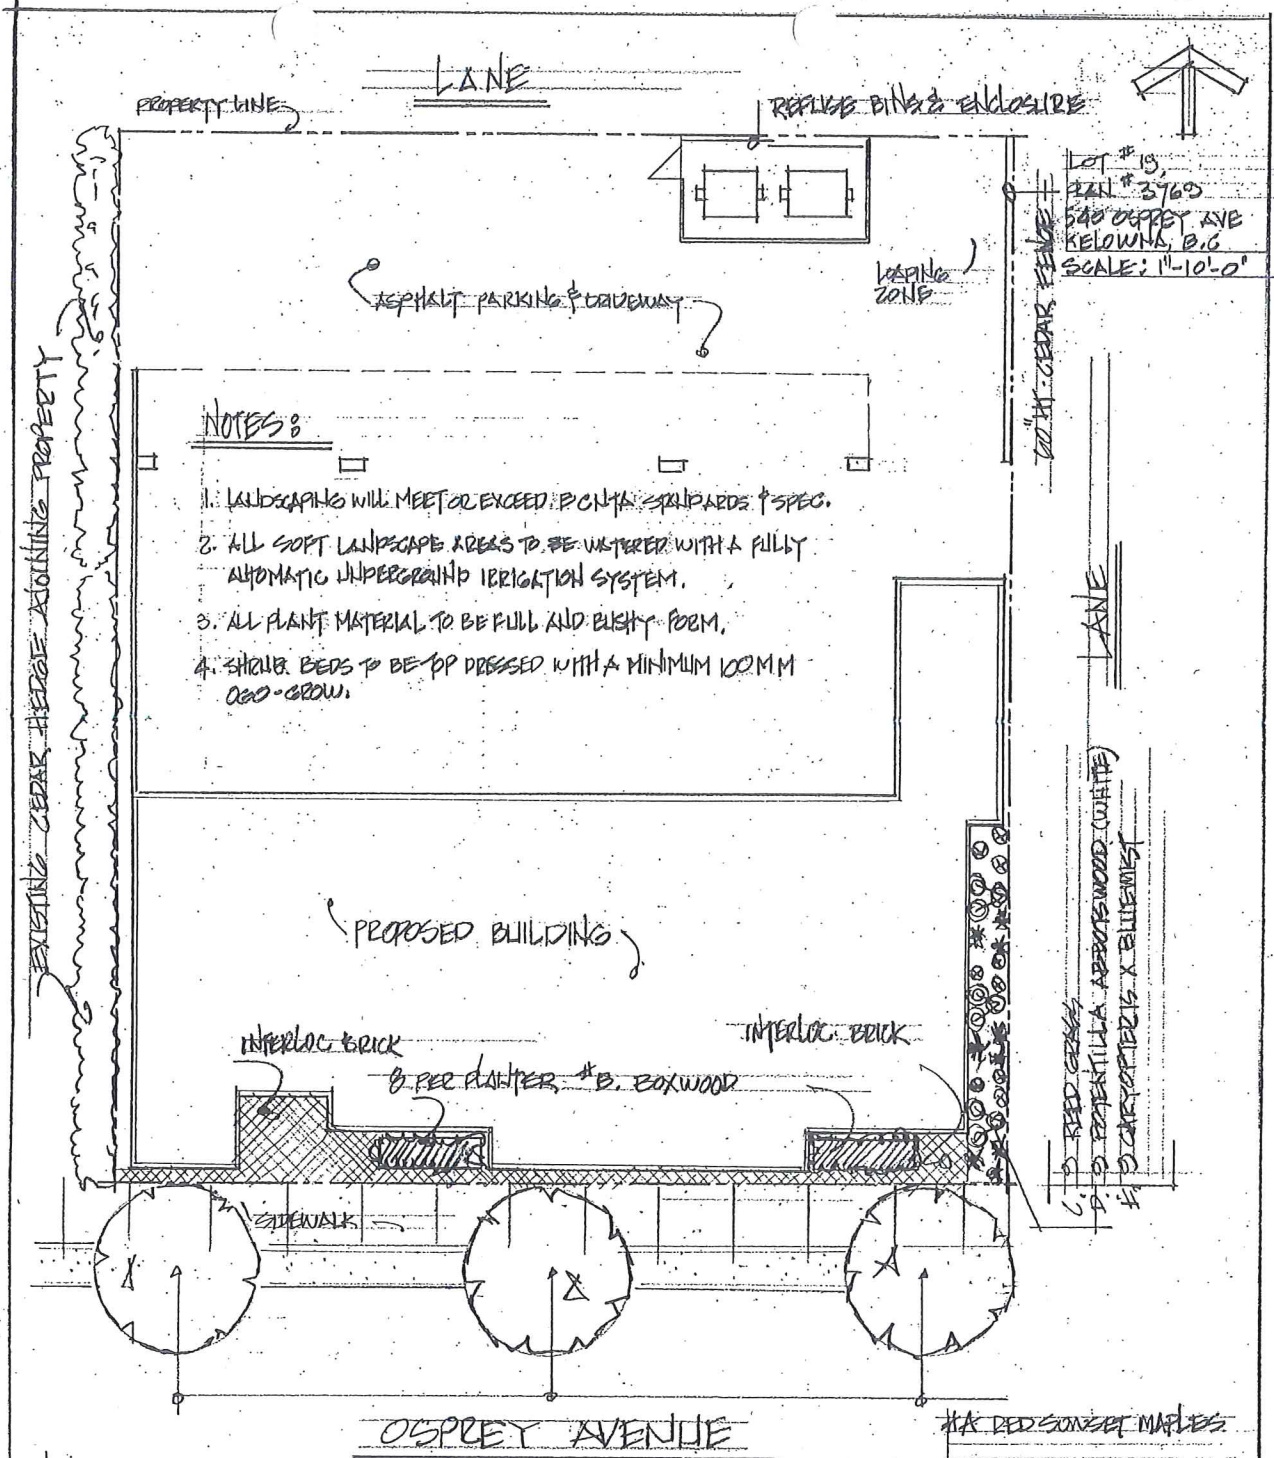 LANE
PROPERTY LINE
REFUSE BINS & ENCLOSURE
LOT # 19,
PLAN # 3769
540 OSPREY AVE
KELOWNA, B.C
SCALE: 1"-10'-0"
LOADING
ZONE
ASPHALT PARKING & DRIVEWAY
HT. CEDAR FENCE
EXISTING CEDAR HEDGE ADJOINING PROPERTY
NOTES:
1. LANDSCAPING WILL MEET OR EXCEED BCNTA STANDARDS & SPEC.
2. ALL SOFT LANDSCAPE AREAS TO BE WATERED WITH A FULLY
AUTOMATIC UNDERGROUND IRRIGATION SYSTEM.
3. ALL PLANT MATERIAL TO BE FULL AND BUSHY FORM.
4. SHRUB BEDS TO BE TOP DRESSED WITH A MINIMUM 100MM
OGO-GROW.
LANE
PROPOSED BUILDING
INTERLOC BRICK
INTERLOC BRICK
8 PER PLANTER #B. BOXWOOD
C. REED GRASS
D. POTENTILLA ABBOTSWOOD (WHITE)
E. CARYOPTERIS X BLUEMIST
SIDEWALK
A
A
A
OSPREY AVENUE
#A RED SUNSET MAPLES